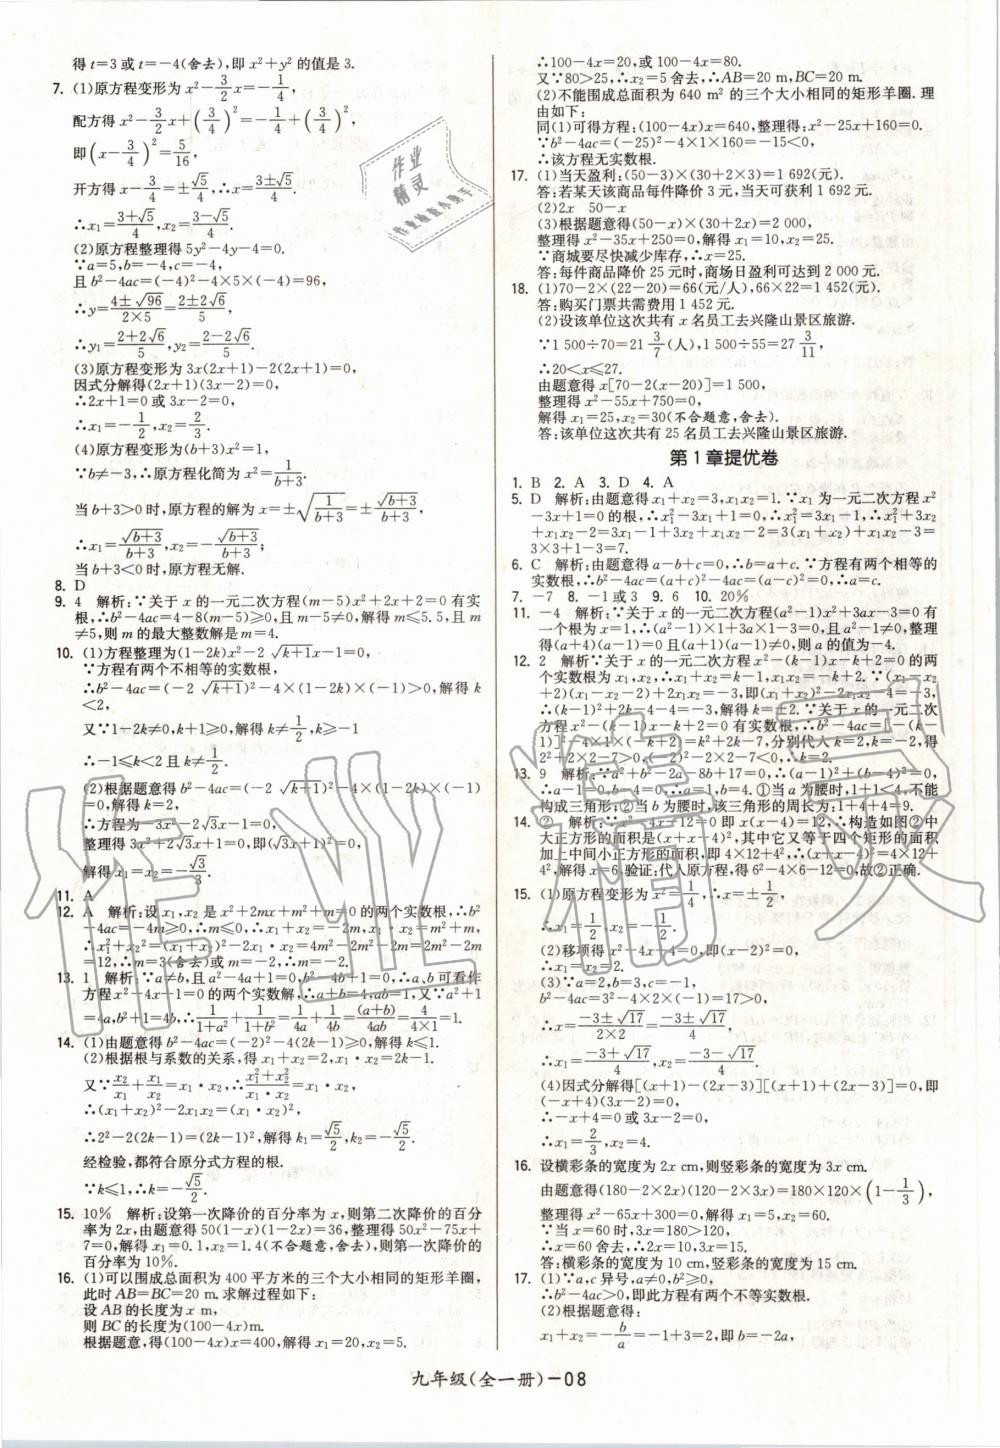 得t=3或t=-4(舍去),即x²+y²的值是3.
7. (1)原方程变形为x²-3/2x=-1/4,
配方得x²-3/2x+(3/4)²=-1/4+(3/4)²,
即(x-3/4)²=5/16,
开方得x-3/4=±√5/4,∴x=(3±√5)/4.
∴x₁=(3+√5)/4,x₂=(3-√5)/4.
(2)原方程整理得5y²-4y-4=0.
∵a=5,b=-4,c=-4,
且b²-4ac=(-4)²-4×5×(-4)=96,
∴y=(4±√96)/(2×5)=(2±2√6)/5,
∴y₁=(2+2√6)/5,y₂=(2-2√6)/5.
(3)原方程变形为3x(2x+1)-2(2x+1)=0.
因式分解得(2x+1)(3x-2)=0,
∴2x+1=0或3x-2=0,
∴x₁=-1/2,x₂=2/3.
(4)原方程变形为(b+3)x²=1.
∵b≠-3,∴原方程化简为x²=1/(b+3).
当b+3>0时,原方程的解为x=±√(1/(b+3))=±√(b+3)/(b+3),
∴x₁=√(b+3)/(b+3),x₂=-√(b+3)/(b+3);
当b+3<0时,原方程无解.
8. D
9. 4 解析:∵关于x的一元二次方程(m-5)x²+2x+2=0有实
根,∴b²-4ac=4-8(m-5)≥0,且m-5≠0,解得m≤5.5,且m
≠5,则m的最大整数解是m=4.
10. (1)方程整理为(1-2k)x²-2√(k+1)x-1=0,
∵方程有两个不相等的实数根,
∴b²-4ac=(-2√(k+1))²-4×(1-2k)×(-1)>0,解得k
<2,
又∵1-2k≠0,k+1≥0,解得k≠1/2,k≥-1
∴-1≤k<2且k≠1/2.
(2)根据题意得b²-4ac=(-2√(k+1))²-4×(1-2k)×(-1)
=0,解得k=2,
∴方程为-3x²-2√3x-1=0,
整理得3x²+2√3x+1=0,即(√3x+1)²=0,
解得x₁=x₂=-√3/3.
11. A
12. A 解析:设x₁,x₂是x²+2mx+m²+m=0的两个实数根,∴b²
-4ac=-4m≥0,∴m≤0,∴x₁+x₂=-2m,x₁·x₂=m²+m,
∴x₁²+x₂²=(x₁+x₂)²-2x₁·x₂=4m²-2m²-2m=2m²-2m
=12,∴m=3(舍去)或m=-2,∴m=-2.
13. 1 解析:∵a≠b,且a²-4a+1=0,b²-4b+1=0,∴a,b可看作
方程x²-4x+1=0的两个实数解,∴a+b=4,ab=1,又∵a²+1
=4a,b²+1=4b,∴1/(1+a²)+1/(1+b²)=1/4a+1/4b=(a+b)/4ab=4/(4×1)=1.
14. (1)由题意得b²-4ac=(-2)²-4(2k-1)≥0,解得k≤1.
(2)根据根与系数的关系,得x₁+x₂=2,x₁·x₂=2k-1.
又∵x₂/x₁+x₁/x₂=x₁·x₂,∴(x₁²+x₂²)/(x₁·x₂)=x₁·x₂,
∴(x₁+x₂)²-2x₁x₂=(x₁·x₂)²,
∴2²-2(2k-1)=(2k-1)²,解得k₁=√5/2,k₂=-√5/2.
经检验,都符合原分式方程的根.
∵k≤1,∴k=-√5/2.
15. 10% 解析:设第一次降价的百分率为x,则第二次降价的百分
率为2x,由题意得50(1-x)(1-2x)=36,整理得50x²-75x+
7=0,解得x₁=0.1,x₂=1.4(不合题意,舍去),则第一次降价的
百分率为10%.
16. (1)可以围成总面积为400平方米的三个大小相同的矩形羊圈,
此时AB=BC=20 m.求解过程如下:
设AB的长度为x m,
则BC的长度为(100-4x)m.
根据题意,得(100-4x)x=400,解得x₁=20,x₂=5.
∴100-4x=20,或100-4x=80.
又∵80>25,∴x₂=5舍去,∴AB=20 m,BC=20 m.
(2)不能围成总面积为640 m²的三个大小相同的矩形羊圈.理
由如下:
同(1)可得方程:(100-4x)x=640,整理得:x²-25x+160=0.
∵b²-4ac=(-25)²-4×1×160=-15<0,
∴该方程无实数根.
17. (1)当天盈利:(50-3)×(30+2×3)=1 692(元).
答:若某天该商品每件降价3元,当天可获利1 692元.
(2)2x 50-x
(3)根据题意得(50-x)×(30+2x)=2 000,
整理得x²-35x+250=0,解得x₁=10,x₂=25.
∵商城要尽快减少库存,∴x=25.
答:每件商品降价25元时,商场日盈利可达到2 000元.
18. (1)70-2×(22-20)=66(元/人),66×22=1 452(元).
答:购买门票共需费用1 452元.
(2)设该单位这次共有x名员工去兴隆山景区旅游.
∵1 500÷70=21 3/7(人),1 500÷55=27 3/11,
∴20<x≤27.
由题意得x[70-2(x-20)]=1 500,
整理得x²-55x+750=0,
解得x₁=25,x₂=30(不合题意,舍去).
答:该单位这次共有25名员工去兴隆山景区旅游.
第1章提优卷
1. B 2. A 3. D 4. A
5. D 解析:由题意得x₁+x₂=3,x₁x₂=1.∵x₁为一元二次方程x²
-3x+1=0的根,∴x₁²-3x₁+1=0,∴x₁²=3x₁-1,∴x₁²+3x₂
+x₁x₂-2=3x₁-1+3x₂+x₁x₂-2=3(x₁+x₂)+x₁x₂-3=
3×3+1-3=7.
6. C 解析:由题意得a-b+c=0,∴b=a+c.∵方程有两个相等的
实数根,∴b²-4ac=(a+c)²-4ac=(a-c)²=0,∴a=c.
7. -7 8. -1或3 9. 6 10. 20%
11. -4 解析:∵关于x的一元二次方程(a²-1)x²+3ax-3=0有
一个根为x=1,∴(a²-1)×1+3a×1-3=0,且a²-1≠0,整理
得(a+4)(a-1)=0且(a+1)(a-1)≠0,则a的值为-4.
12. 2 解析∵关于x的一元二次方程x²-(k-1)x-k+2=0的两
个实数根为x₁,x₂,∴x₁+x₂=k-1,x₁x₂=-k+2.∵(x₁-x₂
+2)(x₁-x₂-2)+2x₁x₂=-3,即(x₁+x₂)²-2x₁x₂-4=-3,
∴(k-1)²+2k-4-4=-3,解得k=±2.∵关于x的一元二次
方程x²-(k-1)x-k+2=0有实数根,∴b²-4ac=[-(k-
1)]²-4×1×(-k+2)=k²+2k-7,分别代入k=2,k=-2,得
2²+2×2-7>0,(-2)²-2×2-7<0,∴k=2.
13. 9 解析:∵a²+b²-2a-8b+17=0,∴(a-1)²+(b-4)²=0,
∴a-1=0,b-4=0,∴a=1,b=4.①当a为腰时,1+1<4,不能
构成三角形;②当b为腰时,该三角形的周长为:1+4+4=9.
14. ② 解析:∵x²-4x-12=0即x(x-4)=12,∴构造如图②中
大正方形的面积是(x+x-4)²,其中它又等于四个矩形的面积
加上中间小正方形的面积,即4×12+4²,∴(x+x-4)²=4×12+
4²,解得x=6.验证:代入原方程,得6²-4×6-12=0,故②正确.
15. (1)原方程变形为x²=1/4,∴x=±1/2,
∴x₁=1/2,x₂=-1/2.
(2)移项得x²-4x+4=0,即(x-2)²=0,
∴x₁=x₂=2.
(3)∵a=2,b=3,c=-1,
b²-4ac=3²-4×2×(-1)=17>0,
∴x=(-3±√17)/(2×2)=(-3±√17)/4,
∴x₁=(-3+√17)/4,x₂=(-3-√17)/4.
(4)因式分解得[(x+1)-(2x-3)][(x+1)+(2x-3)]=0,即
(-x+4)(3x-2)=0,
∴-x+4=0或3x-2=0,
∴x₁=2/3,x₂=4.
16. 设横彩条的宽度为2x cm,则竖彩条的宽度为3x cm.
由题意得(180-2×2x)(120-2×3x)=180×120×(1-1/3),
整理得x²-65x+300=0,解得x₁=5,x₂=60.
∵当x=60时,3x=180>120,
∴x=60舍去,∴2x=10,3x=15.
答:横彩条的宽度为10 cm,竖彩条的宽度为15 cm.
17. (1)∵a,c异号,a≠0,b²≥0,
∴b²-4ac>0,即此方程有两个不等实数根.
(2)根据题意得:
x₁+x₂=-b/a=-1+3=2,即b=-2a,
九年级(全一册)-08
作业
精灵
作业精灵